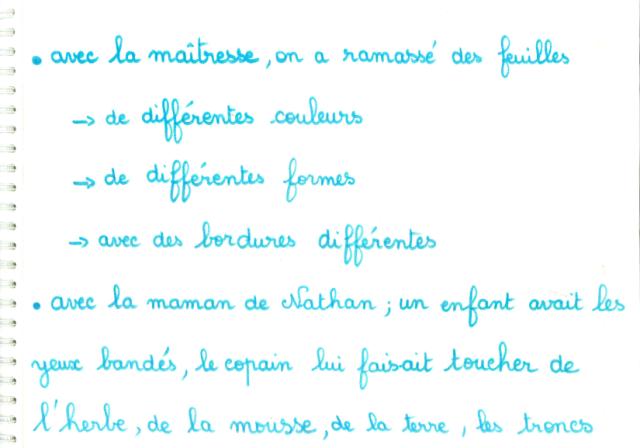 • avec la maîtresse, on a ramassé des feuilles
→ de différentes couleurs
→ de différentes formes
→ avec des bordures différentes
• avec la maman de Nathan ; un enfant avait les
yeux bandés, le copain lui faisait toucher de
l'herbe, de la mousse, de la terre, les troncs